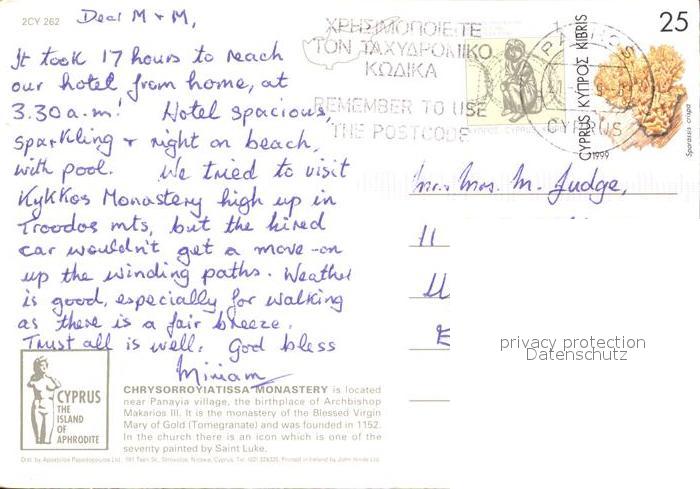 2CY 262
Dear M + M,
It took 17 hours to reach
our hotel from home, at
3.30 a.m! Hotel spacious,
sparkling + right on beach,
with pool. We tried to visit
Kykkos Monastery high up in
Troodos mts, but the hired
car wouldn't get a move-on
up the winding paths. Weather
is good, especially for walking
as there is a fair breeze.
Trust all is well. God bless
Miriam
ΧΡΗΣΙΜΟΠΟΙΕΙΤΕ
ΤΟΝ ΤΑΧΥΔΡΟΜΙΚΟ
ΚΩΔΙΚΑ
REMEMBER TO USE
THE POSTCODE
PAPHOS
CYPRUS
25
CYPRUS ΚΥΠΡΟΣ KIBRIS
1999
Sparassis crispa
Mr. Mrs. M. Judge,
11
privacy protection
Datenschutz
CYPRUS
THE
ISLAND
OF
APHRODITE
CHRYSORROYIATISSA MONASTERY is located
near Panayia village, the birthplace of Archbishop
Makarios III. It is the monastery of the Blessed Virgin
Mary of Gold (Tomegranate) and was founded in 1152.
In the church there is an icon which is one of the
seventy painted by Saint Luke.
Dist. by Apostolos Papadopoulos Ltd. Strovolos, Nicosia, Cyprus. Printed in Ireland by John Hinde Ltd.